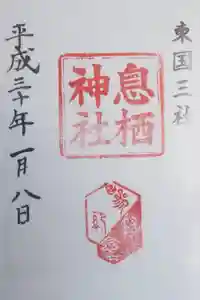 東国三社
息栖
神社
平成三十年一月八日